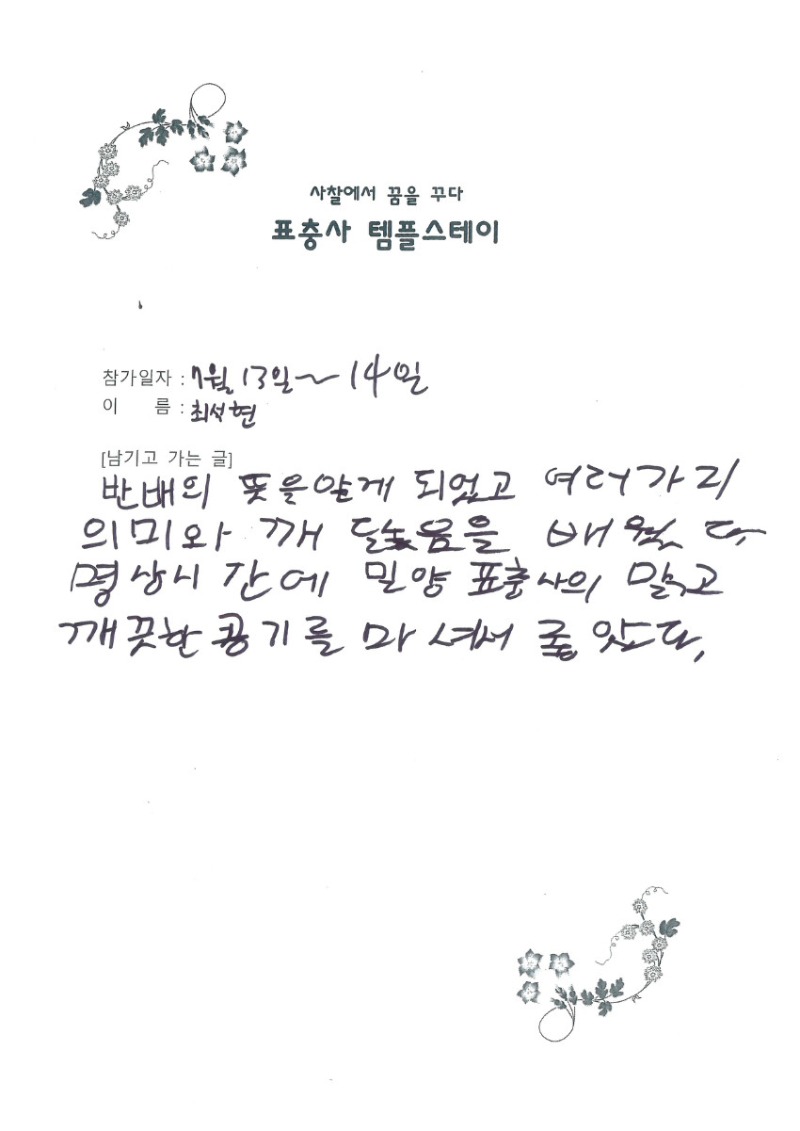 사찰에서 꿈을 꾸다
표충사 템플스테이
참가일자 : 7월 13일~14일
이 름 : 최석현
[남기고 가는 글]
반배의 뜻을알게 되었고 여러가지
의미와 깨 달음을 배웠다
명상시간에 밀양 표충사의 맑고
깨끗한 공기를 마셔서 좋았다.